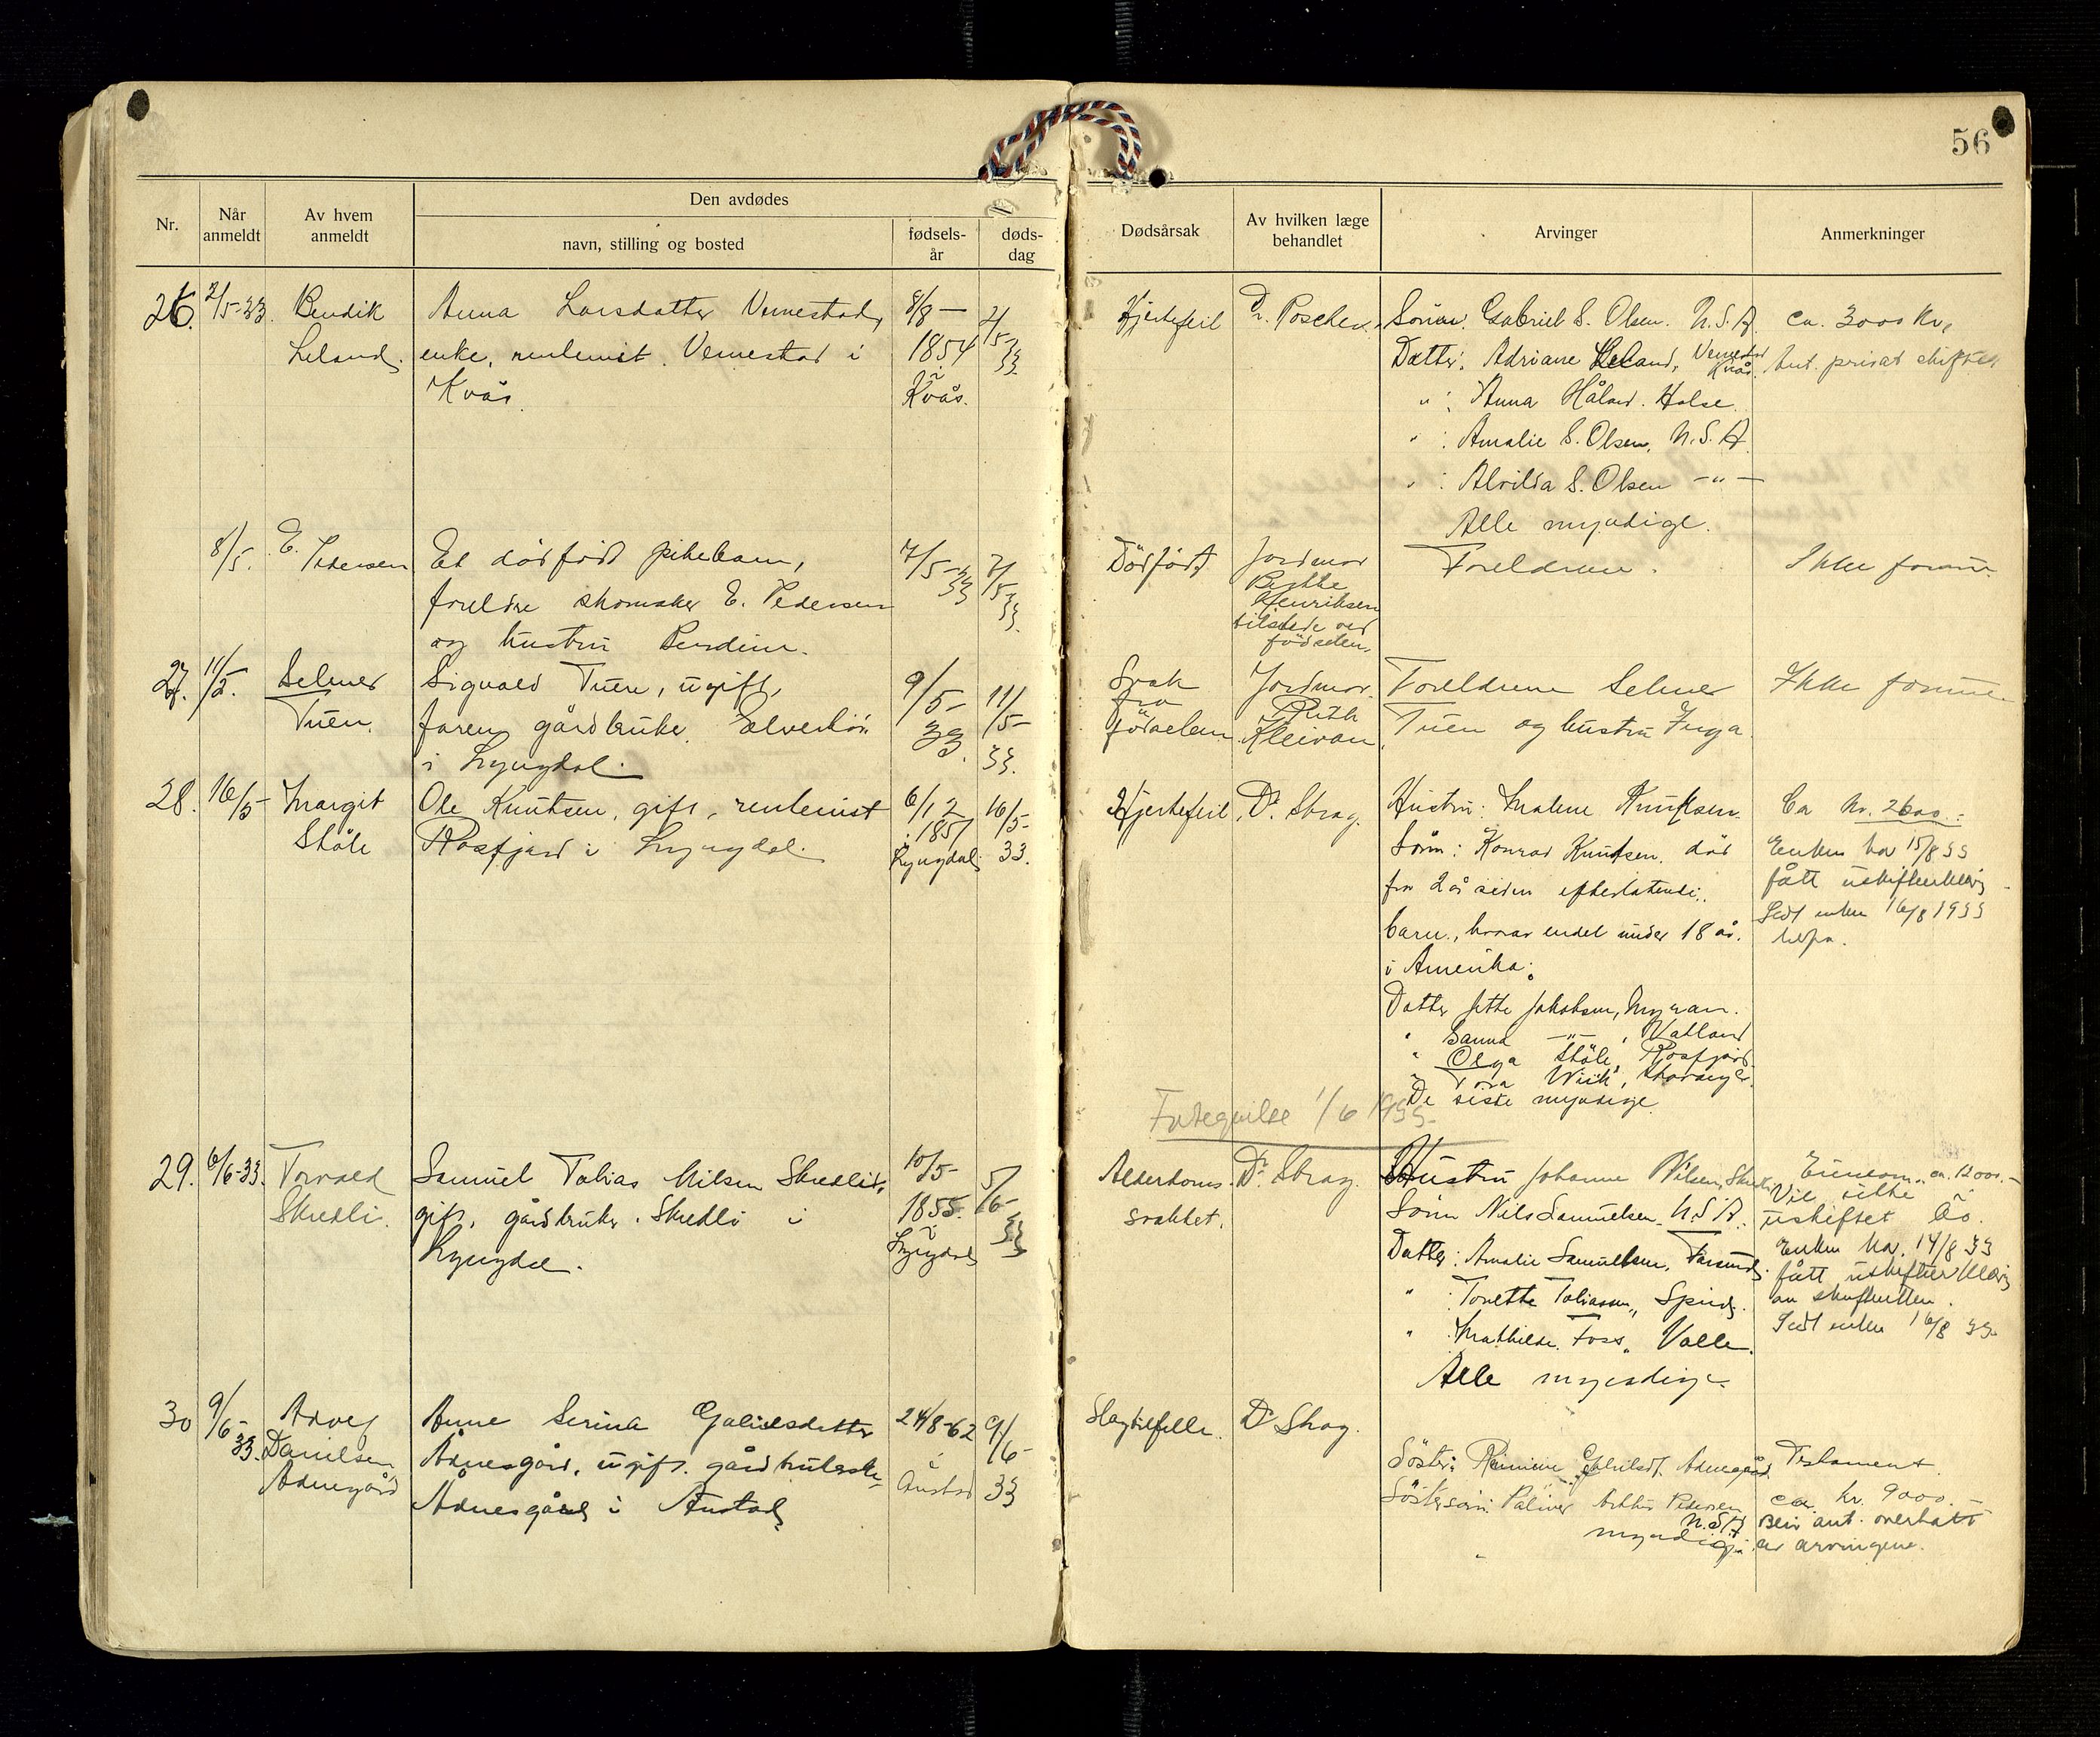 56
Nr.
Når anmeldt
Av hvem anmeldt
Den avdødes
navn, stilling og bosted
fødsels-år
døds-dag
Dødsårsak
Av hvilken læge behandlet
Arvinger
Anmerkninger
26. 2/5-33. Bendik Anna Larsdatter Vemestad, 8/8 — 2/
Leland. enke, rentenist. Vemestad i 1854 5-
Kvås i Kvås. 33.
Hjertefeil Dr. Poschen. Sønn: Gabriel S. Olsen. U.S.A. ca. 3000 kr.
Datter: Adriane Leland, Vemestad Kvås. Ant. privat skiftet
" : Anna Håland. Halse.
" : Amalie S. Olsen, U.S.A.
" : Alvilda S. Olsen —"—
Alle myndige.
8/5. E. Pedersen Et dødfødt pikebarn, 7/5-33 7/5-33.
foreldre skomaker E. Pedersen
og hustru Berdine.
Dødfødt Jordmor Foreldrene. Ikke formue
Henriksen
tilstede ved
fødselen.
27. 11/5. Selmer Sigvald Tuen, ugift, 9/5-33. 11/5-33.
Tuen. faren gårdbruker
i Lyngdal.
Svak Jordmor Foreldrene Selmer Ikke formue.
fra Ruth Tuen og hustru Inga
fødselen Kleivan
28. 16/5 Margit Ole Knutsen, gift, rentenist 6/12 16/5-
Ståle Rosfjord i Lyngdal. 1851 33.
i Lyngdal.
Hjertefeil. Dr. Skrag. Hustru: Malene Knutsen. Ca kr. 2600.-
Sønn: Konrad Knutsen, død Enken har 15/8 33
for 2 år siden efterlatende fått uskiftebevilg
barn, hvorav endel under 18 år. Sedt enken 16/8 1933
i Amerika.
Datter Jette Jakobsen, Myran.
" Sanna —"—, Vatland
" Olga Ståle, Rosfjord
" Tora Wiik, Stavanger.
De siste myndige
1/6 1933.
29. 6/6-33. Torvald Samuel Tobias Nilsen Skredli, 10/5- 5/6-
Skredli. gift, gårdbruker. Skredli i 1855. 33
Lyngdal. i Lyngdal
Alderdoms- Dr. Skrag. Hustru Johanne Nilsen, Skredli Eiendom, ca. 12000.-
svakhet. Sønn Nils Samuelsen U.S.A. Vil sitte i
Datter: Amalie Samuelsen, Farsund. uskiftet bo.
" : Tonette Tobiassen, Spind. Enken har 14/8 33
" : Mathilde Foss, Valle. fått uskiftebevilg
Alle myndige. av skifteretten.
Sedt enken 16/8 33
30 9/6-33. Advej Anne Serina Gabrielsdatter 24/8-62 9/6-
Danielsen Ådnesgård, ugift. gårdbrukerske i Austad 33
Ådnegård Ådnesgård i Austad
Slagtilfelle. Dr Skrag.
Søster: Gabrielsd. Ådnegård. Testament.
Søstersønn: Palmer Arthur Pedersen ca. kr. 9000.-
U.S.A. Blir ant. overtatt
myndige. av arvingene.